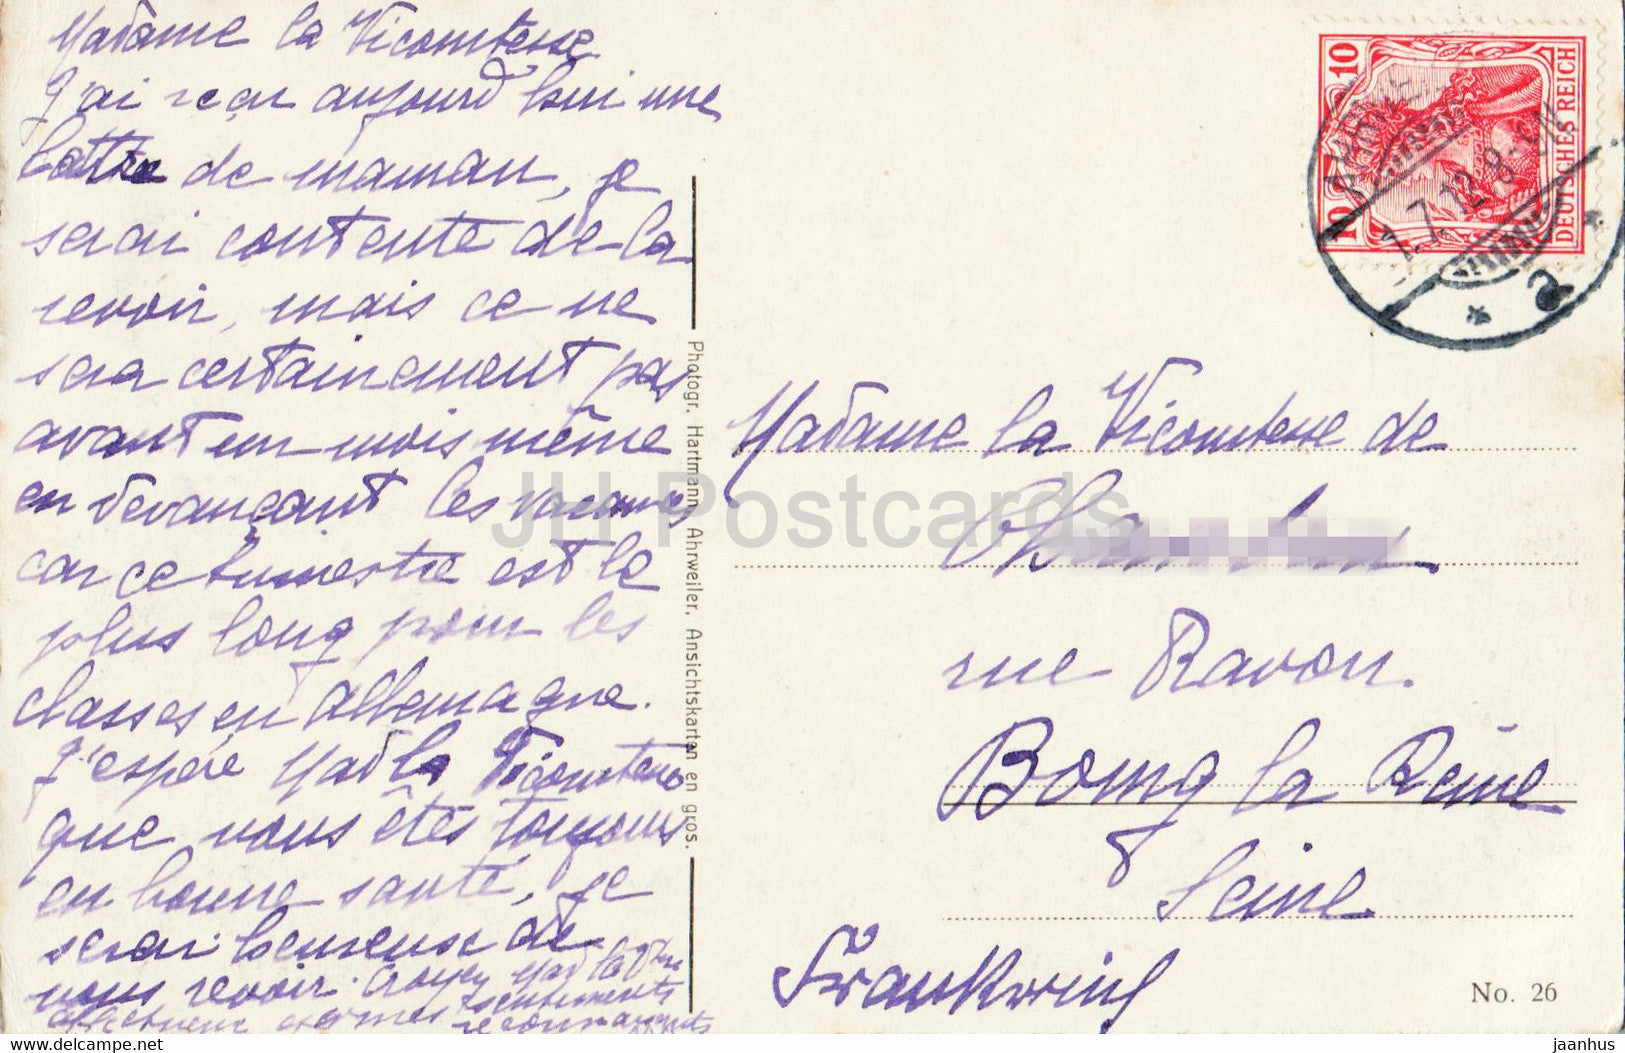 Madame la Vicomtesse
J'ai reçu aujourd'hui une
lettre de maman, je
serai contente de la
revoir, mais ce ne
sera certainement pas
avant un mois même
en devançant les vacances
car ce trimestre est le
plus long pour les
classes en Allemagne.
J'espère Mad la Vicomtesse
que vous êtes toujours
en bonne santé, je
serai heureuse de
vous revoir. Croyez Mad la
sentiments
affectueux et à mes
reconnaissants
Photogr. Hartmann, Ahrweiler, Ansichtskarten en gros.
DEUTSCHES REICH
10 10
1.7.12.8-9N
a
Madame la Vicomtesse de
rue Ravon.
Bourg la Reine
Seine
Frankreich
No. 26
JH Postcards
jaanhus.ecrater.com
jaanhus